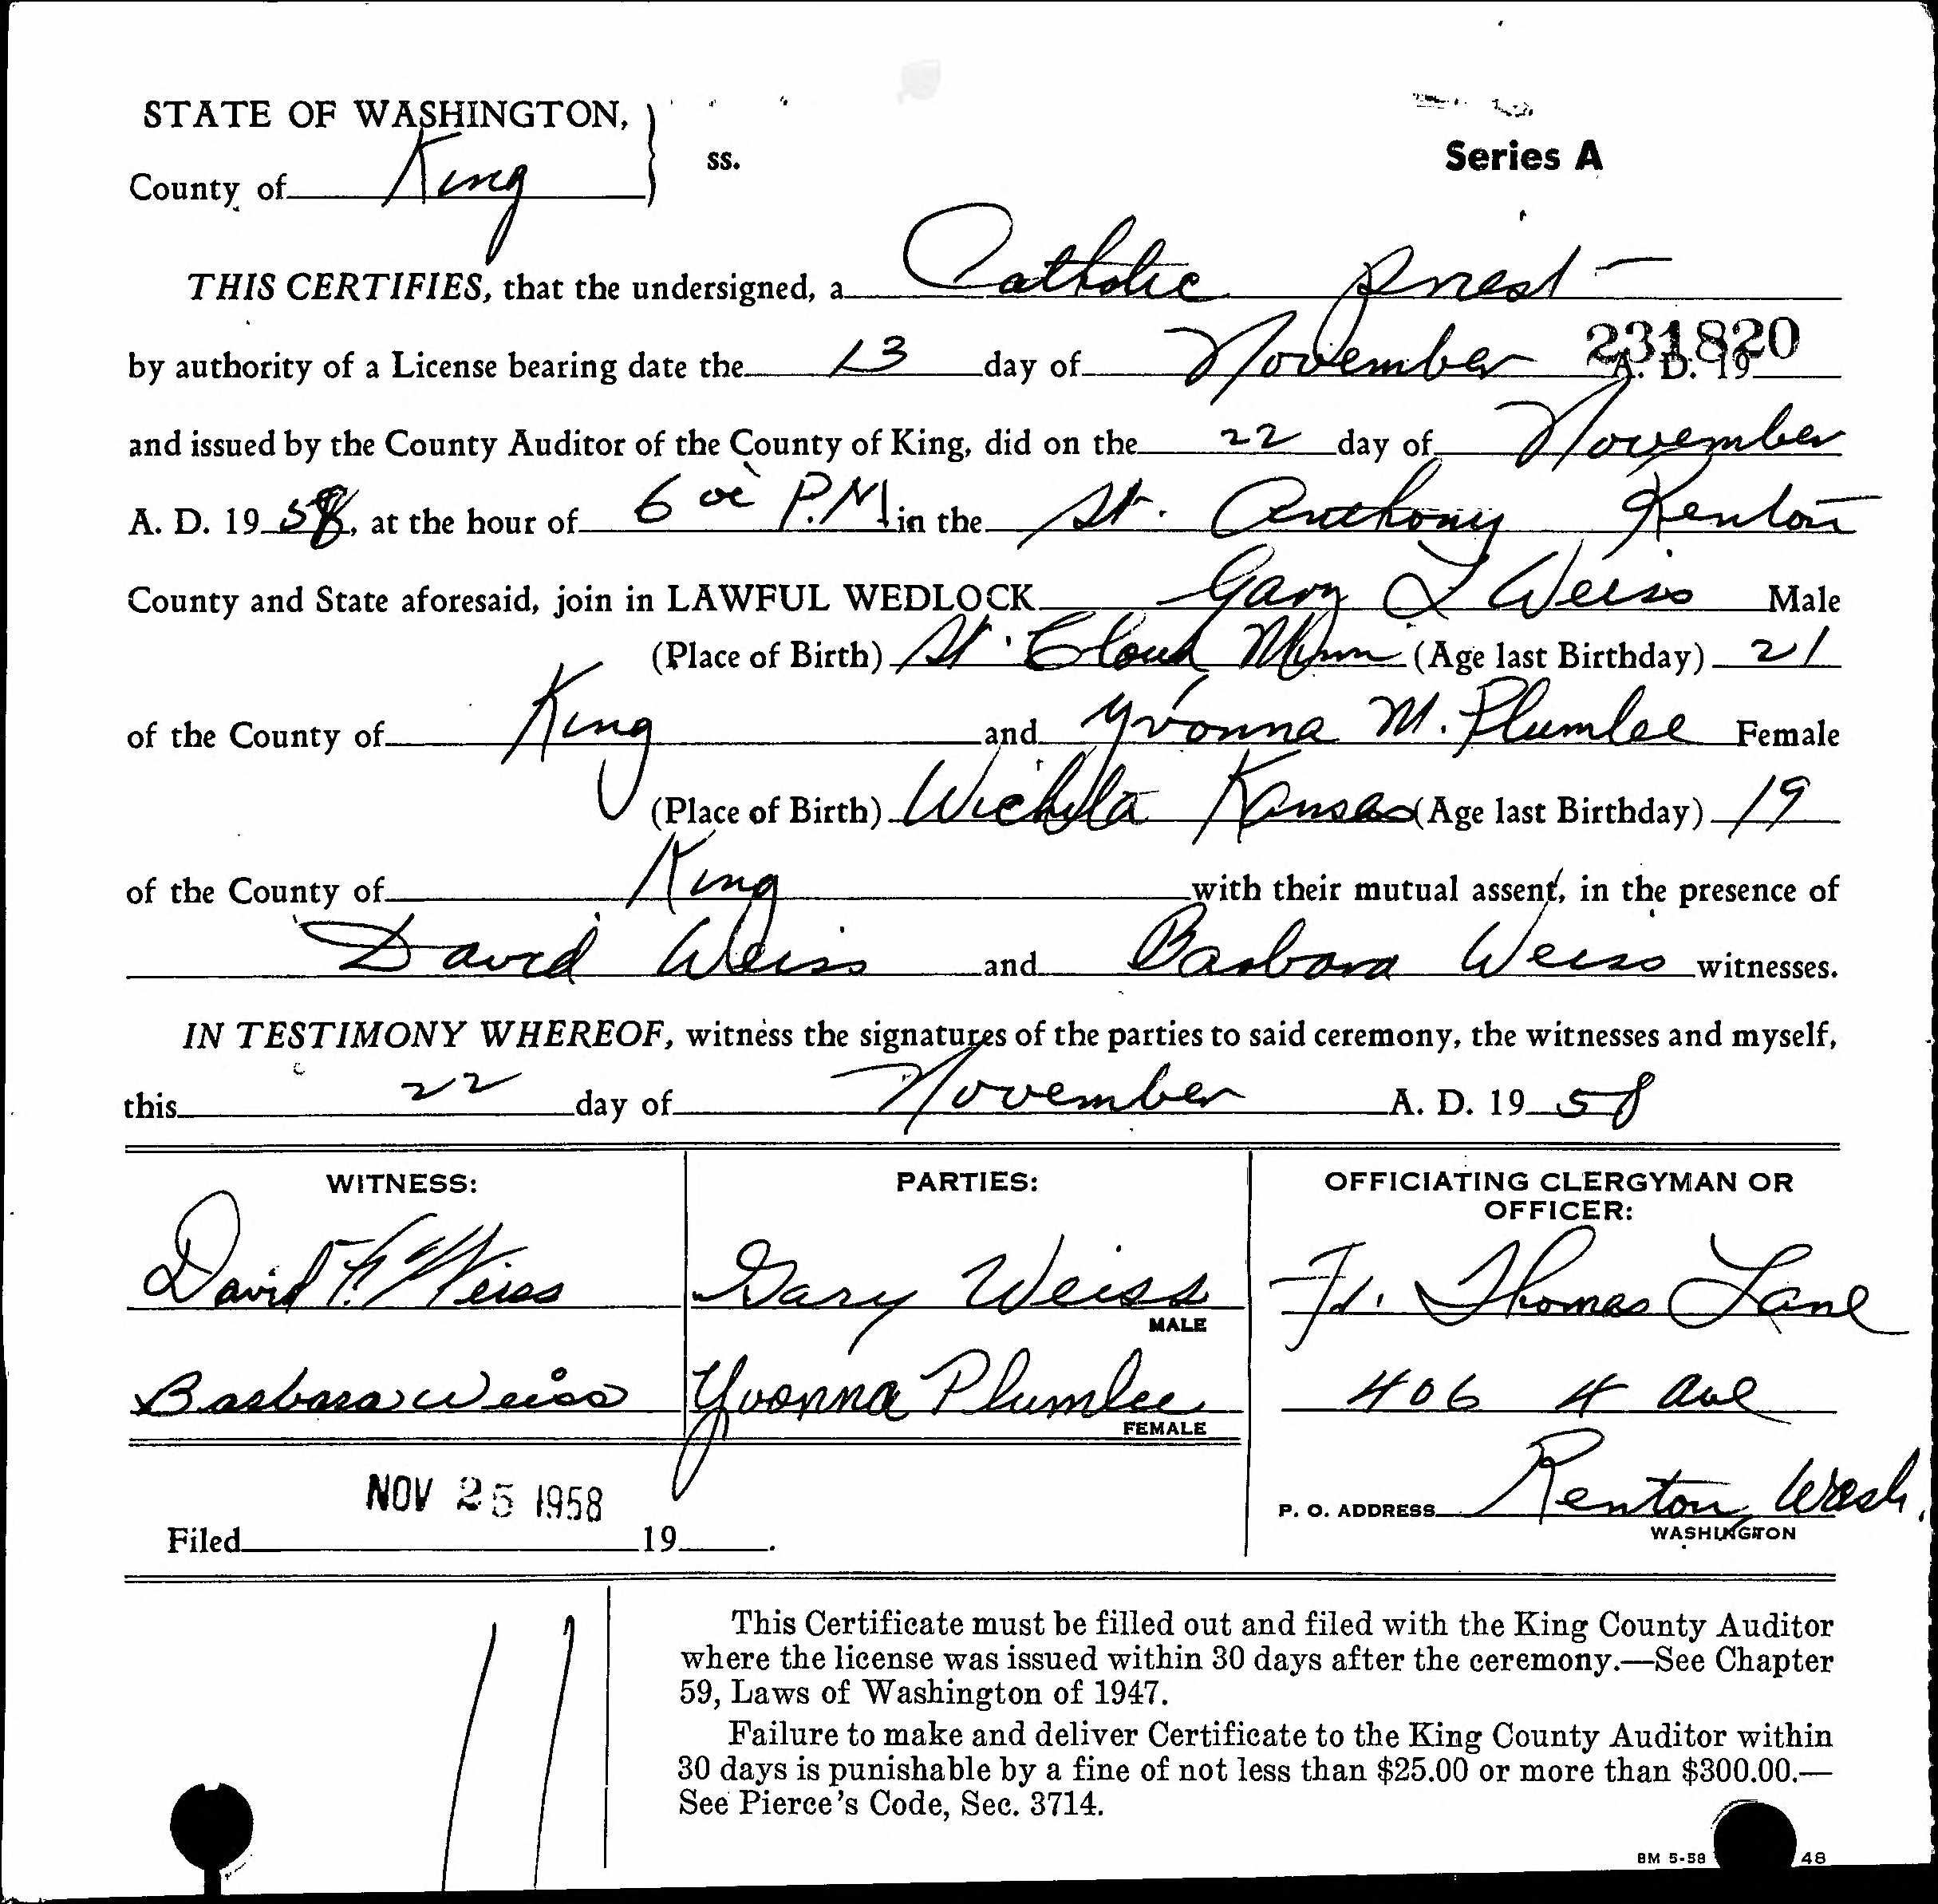 STATE OF WASHINGTON,
County of King ss.
Series A
THIS CERTIFIES, that the undersigned, a Catholic Priest
231820
by authority of a License bearing date the 13 day of November A. D. 19
and issued by the County Auditor of the County of King, did on the 22 day of November
A. D. 19 58, at the hour of 6 oc P.M in the St. Anthony Renton
County and State aforesaid, join in LAWFUL WEDLOCK Gary L Weiss Male
(Place of Birth) St. Cloud Minn (Age last Birthday) 21
of the County of King and Yvonna M. Plumlee Female
(Place of Birth) Wichita Kansas (Age last Birthday) 19
of the County of King with their mutual assent, in the presence of
David Weiss and Barbara Weiss witnesses.
IN TESTIMONY WHEREOF, witness the signatures of the parties to said ceremony, the witnesses and myself,
this 22 day of November A. D. 19 58
WITNESS: PARTIES: OFFICIATING CLERGYMAN OR
OFFICER:
David F. Weiss Gary Weiss Fr. Thomas Lane
MALE
Barbara Weiss Yvonna Plumlee 406 4 Ave
FEMALE
NOV 25 1958
P. O. ADDRESS Renton, Wash.
WASHINGTON
Filed 19 .
This Certificate must be filled out and filed with the King County Auditor
where the license was issued within 30 days after the ceremony.—See Chapter
59, Laws of Washington of 1947.
Failure to make and deliver Certificate to the King County Auditor within
30 days is punishable by a fine of not less than $25.00 or more than $300.00.—
See Pierce's Code, Sec. 3714.
BM 5-58 48